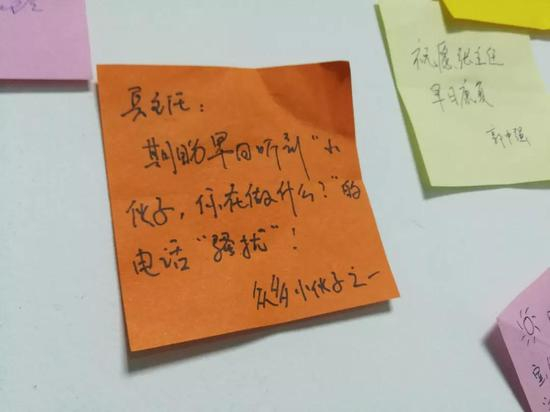 吴主任：
期盼早日听到“小
伙子，你在做什么？”的
电话“骚扰”！
众多小伙子之一
祝愿张主任
早日康复